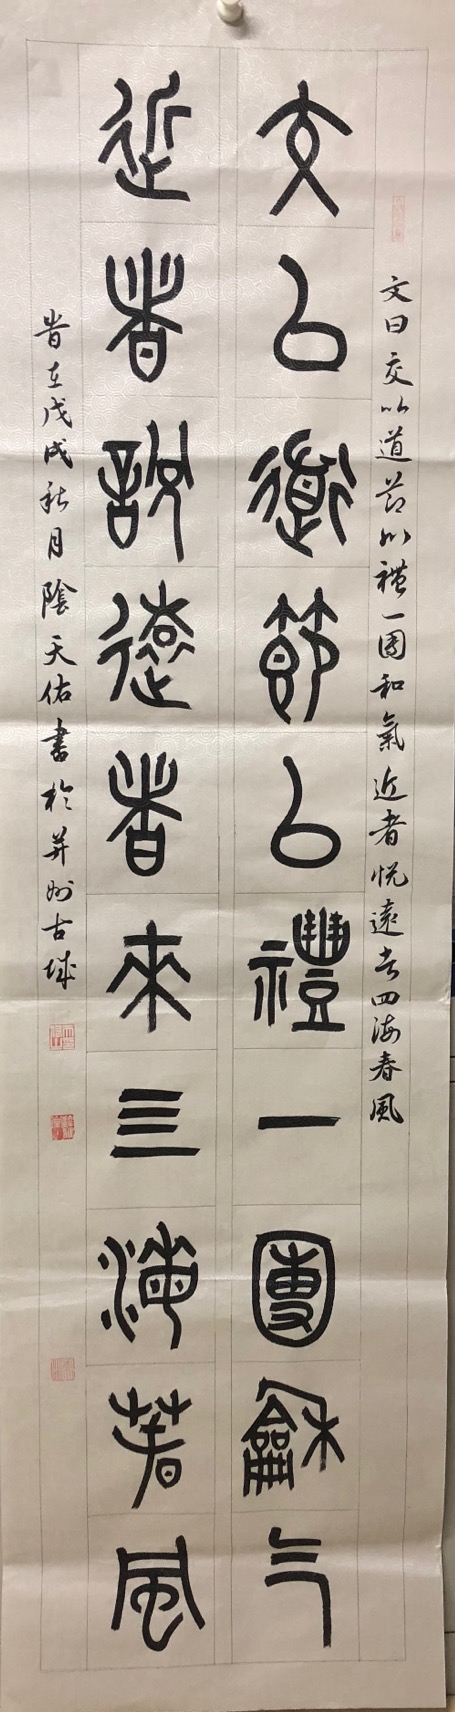 文曰交以道節以禮一團和氣近者悅遠者四海春風
交以道節以禮一團龢气
近者說遠者來三海春風
旹在戊戌秋月陰天佑書於并州古城